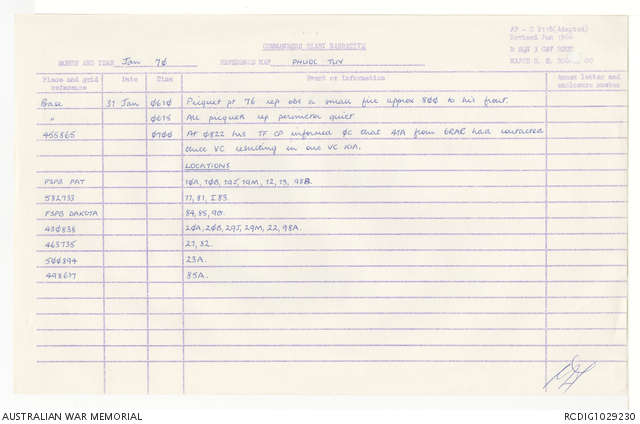 COMMANDERS DIARY NARRATIVE
MONTH AND YEAR Jan 70 REFERENCE MAP PHUOC TUY
Place and grid reference Date Time Event or Information Annex letter and enclosure number
Base 31 Jan 0610 Picquet pt 76 rep obs a small fire approx 800 to his front.
" 0615 All picquets rep perimeter quiet
455665 0700 At 0822 hrs TF CP informed 0C that 41A from 6RAR had contacted
three VC resulting in one VC KIA.
LOCATIONS
FSPB PAT 10A, 10B, 19J, 19M, 12, 13, 98B.
532733 77, 81, I83
FSPB DAKOTA 84, 85, 9B.
430838 20A, 20B, 29J, 29M, 22, 98A.
463735 27, 32.
500894 23A.
498677 85A.
AUSTRALIAN WAR MEMORIAL RCDIG1029230